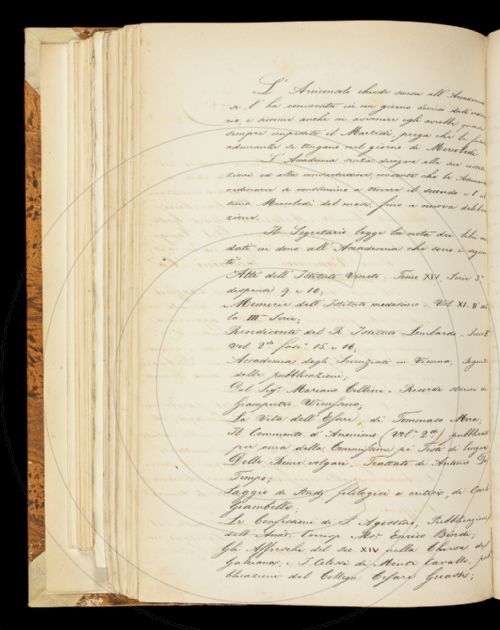 L'Arciconsolo chiede scusa all'Accademia
se l'ha convocata in un giorno diverso dall'
e siccome anche in avvenire egli avrebbe quasi
sempre impedito il Martedì, prega che le
adunanze si tengano nel giorno di Mercoledì.
L'Accademia
ordinarie si continuino a tenere il secondo e l'ul
timo Mercoledì del mese, fino a nuova delibera
zione.
Il Segretario legge la nota dei libri man
dati in dono all'Accademia che sono i seguen
ti:
Atti dell'Istituto Veneto. Tomo XIV Serie 3ª
dispensa 9 e 10;
Memorie dell'Istituto medesimo - Vol. XI.
la IIIª Serie;
Rendiconti del R. Istituto Lombardo - Serie
Vol. 2º fasc. 15 e 16;
Accademia degli in Vienna,
delle pubblicazioni;
Del Sig. Mariano Cellini - Ricordi storici di
Giampietro Vieusseux;
La Vita dell' di Tommaso
Il Commento d'Anonimo (Vol. 2º) pubblicato
per cura della Commissione pe' Testi di lingua
Delle Rime volgari, Trattato di Antonio Da
Tempo;
Saggio di Studj filologici e critici, di Carlo
Giambelli;
Le Confessioni di S. Agostino, Pubblicazione
dell' Corrisp. Monr. Enrico Bindi;
Gli Affreschi del sec. XIV nella Chiesa del
Galluzzo, e di Cavallo, pub
blicazioni del Collega Cesare Guasti;